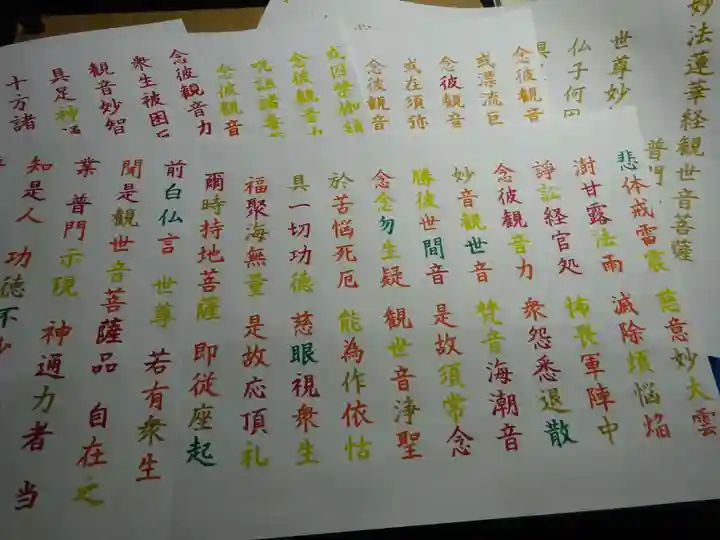 妙法蓮華経観世音菩薩
普門
世尊妙
仏子何
具
念彼観音
或漂流巨
念彼観音
或在須弥
念彼観音
或囚禁枷鎖
念彼観音力
呪詛諸毒
念彼観音
念彼観音力
衆生被困
観音妙智
具足神通
十方諸
悲体戒雷震 慈意妙大雲
澍甘露法雨 滅除煩悩焔
諍訟経官処 怖畏軍陣中
念彼観音力 衆怨悉退散
妙音観世音 梵音海潮音
勝彼世間音 是故須常念
念念勿生疑 観世音浄聖
於苦悩死厄 能為作依怙
具一切功徳 慈眼視衆生
福聚海無量 是故応頂礼
爾時持地菩薩 即従座起
前白仏言 世尊 若有衆生
聞是観世音菩薩品 自在之
業 普門示現 神通力者 当
知是人 功徳不少